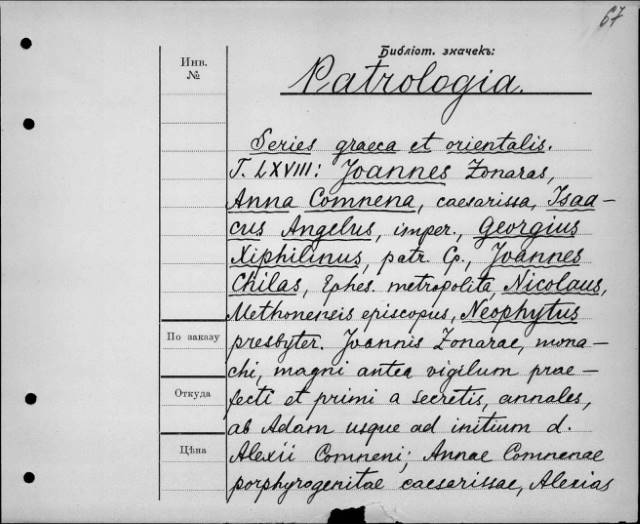 67
Библіот. значекъ:
Инв.
№
Patrologia.
Series graeca et orientalis.
T. LXVIII: Joannes Zonaras,
Anna Comnena, caesarissa, Isaa-
cus Angelus, imper., Georgius
Xiphilinus, patr. Cp., Joannes
Chilas, Ephes. metropolita, Nicolaus,
Methoneneis episcopus, Neophytus
По заказу
presbyter. Joannis Zonarae, mona-
chi, magni antea vigilum prae-
Откуда
fecti et primi a secretis, annales,
ab Adam usque ad initium d.
Цѣна
Alexii Comneni; Annae Comnenae
porphyrogenitae caesarissae, Alexias